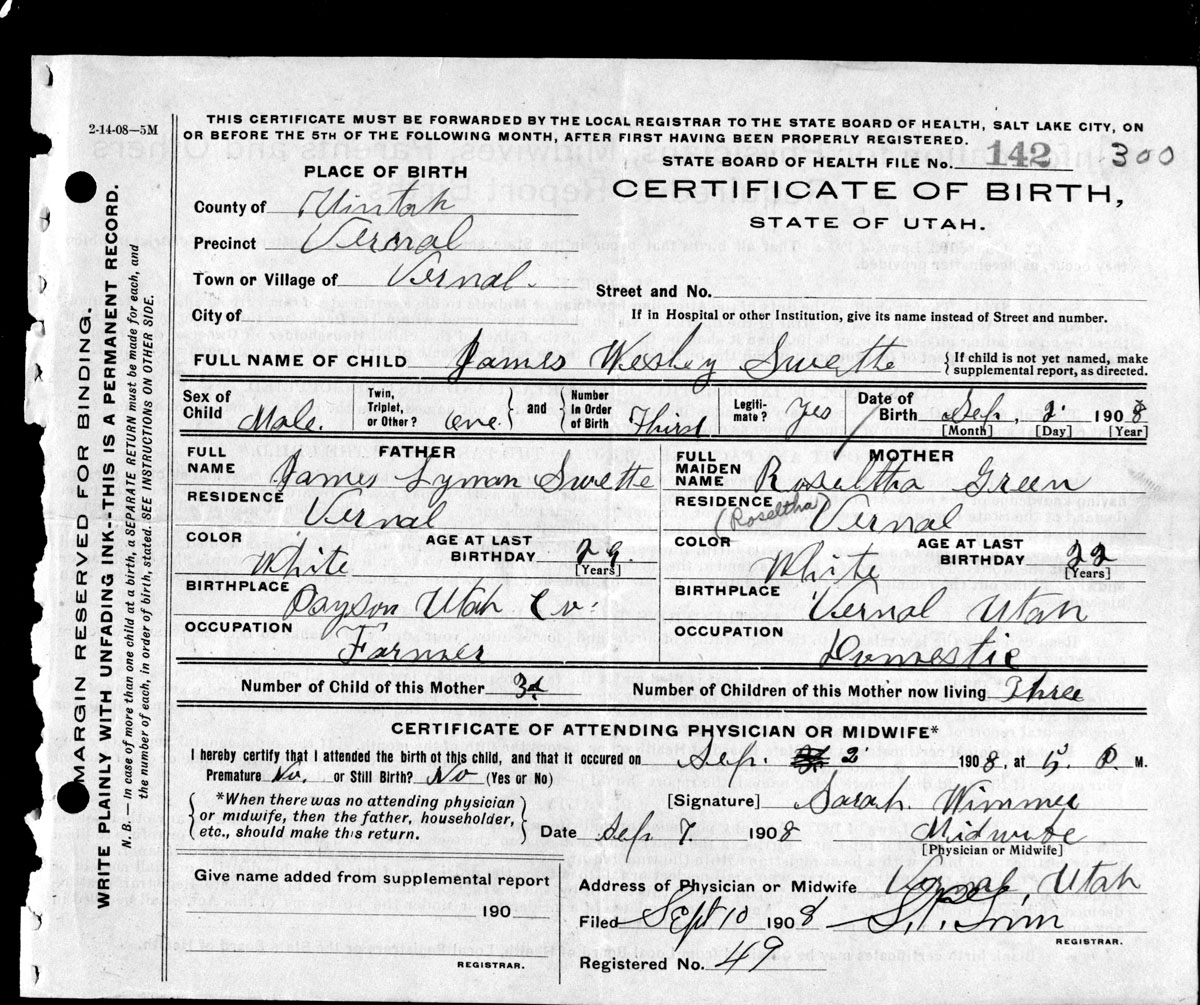 2-14-08—5M
THIS CERTIFICATE MUST BE FORWARDED BY THE LOCAL REGISTRAR TO THE STATE BOARD OF HEALTH, SALT LAKE CITY, ON
OR BEFORE THE 5TH OF THE FOLLOWING MONTH, AFTER FIRST HAVING BEEN PROPERLY REGISTERED.
STATE BOARD OF HEALTH FILE No. 142 300
PLACE OF BIRTH
CERTIFICATE OF BIRTH,
STATE OF UTAH.
County of Uintah
Precinct Vernal
Town or Village of Vernal.
Street and No.
City of
If in Hospital or other Institution, give its name instead of Street and number.
FULL NAME OF CHILD James Wesley Swett {If child is not yet named, make
supplemental report, as directed.
Sex of Child Male. Twin, Triplet, or Other? One } and { Number in Order of Birth Third Legiti-mate? Yes Date of Birth Sep. 2 1908
[Month] [Day] [Year]
FATHER
FULL NAME James Lyman Swett
RESIDENCE Vernal
COLOR White AGE AT LAST BIRTHDAY 29 [Years]
BIRTHPLACE Payson Utah Co.
OCCUPATION Farmer
MOTHER
FULL MAIDEN NAME Roseltha Green
RESIDENCE (Roseltha) Vernal
COLOR White AGE AT LAST BIRTHDAY 22 [Years]
BIRTHPLACE Vernal Utah
OCCUPATION Domestic
Number of Child of this Mother 3d Number of Children of this Mother now living Three
CERTIFICATE OF ATTENDING PHYSICIAN OR MIDWIFE*
I hereby certify that I attended the birth of this child, and that it occured on Sep. 2 1908, at 5 P. M.
Premature No. or Still Birth? No (Yes or No)
{*When there was no attending physician
or midwife, then the father, householder,
etc., should make this return.}
[Signature] Sarah Wimmer
Date Sep. 7. 1908 Midwife
[Physician or Midwife]
Give name added from supplemental report
190
REGISTRAR.
Address of Physician or Midwife Vernal Utah
Filed Sept 10 1908
REGISTRAR.
Registered No. 49
MARGIN RESERVED FOR BINDING.
WRITE PLAINLY WITH UNFADING INK--THIS IS A PERMANENT RECORD.
N. B.—In case of more than one child at a birth, a SEPARATE RETURN must be made for each, and
the number of each, in order of birth, stated. SEE INSTRUCTIONS ON OTHER SIDE.